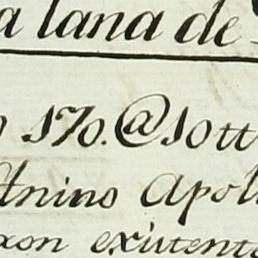 a lana de
170.@10tt
Anino Apol
con exiutent